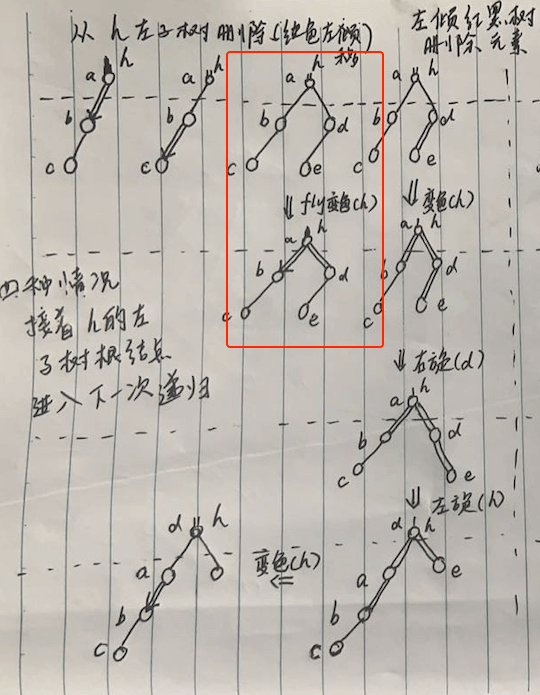 从 h 左子树删除(红色左倾
移动)
左倾红黑树
删除元素
h
a
b
c
h
a
b
c
h
a
b
d
c
e
h
a
b
d
c
e
⇓ fly变色(h)
⇓ 变色(h)
h
a
b
d
c
e
h
a
b
d
c
e
四种情况
接着 h 的左
子树根结点
进入下一次递归
⇓ 右旋(d)
h
a
b
d
c
e
⇓ 左旋(h)
d h
a
b
c
变色(h)
⇐
d h
a
e
b
c